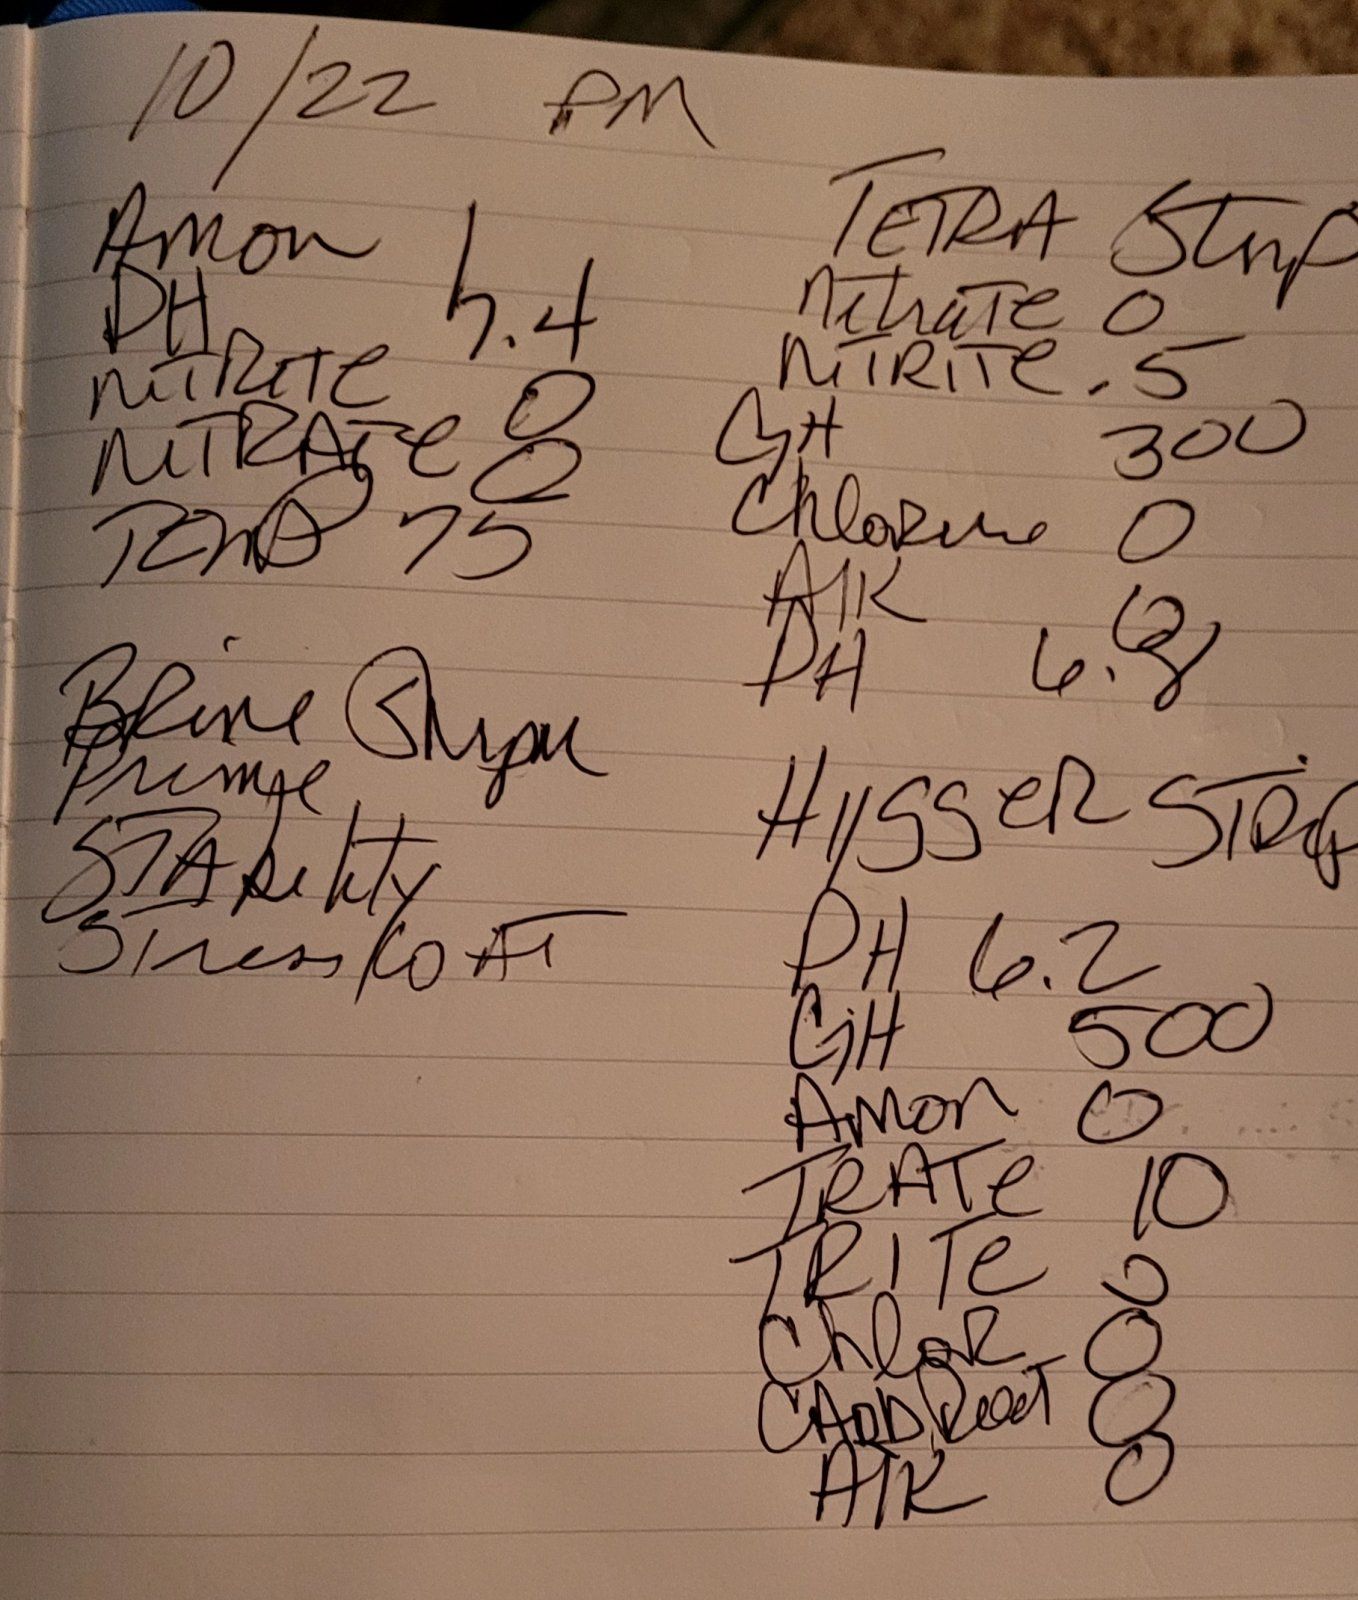 10/22 PM
Amon
PH 7.4
NITRITE 0
NITRATE 0
Temp 75
Brine Shrpm
Prime
STAbility
Stress COAT
TETRA Strip
NitraTe 0
NITRITE .5
GH 300
Chlorine 0
AlK 0
PH 6.8
HYGGER STRip
PH 6.2
GH 500
Amon 0
TRATe 10
TRITe 0
ChloR 0
CARb Root 0
AlK 0